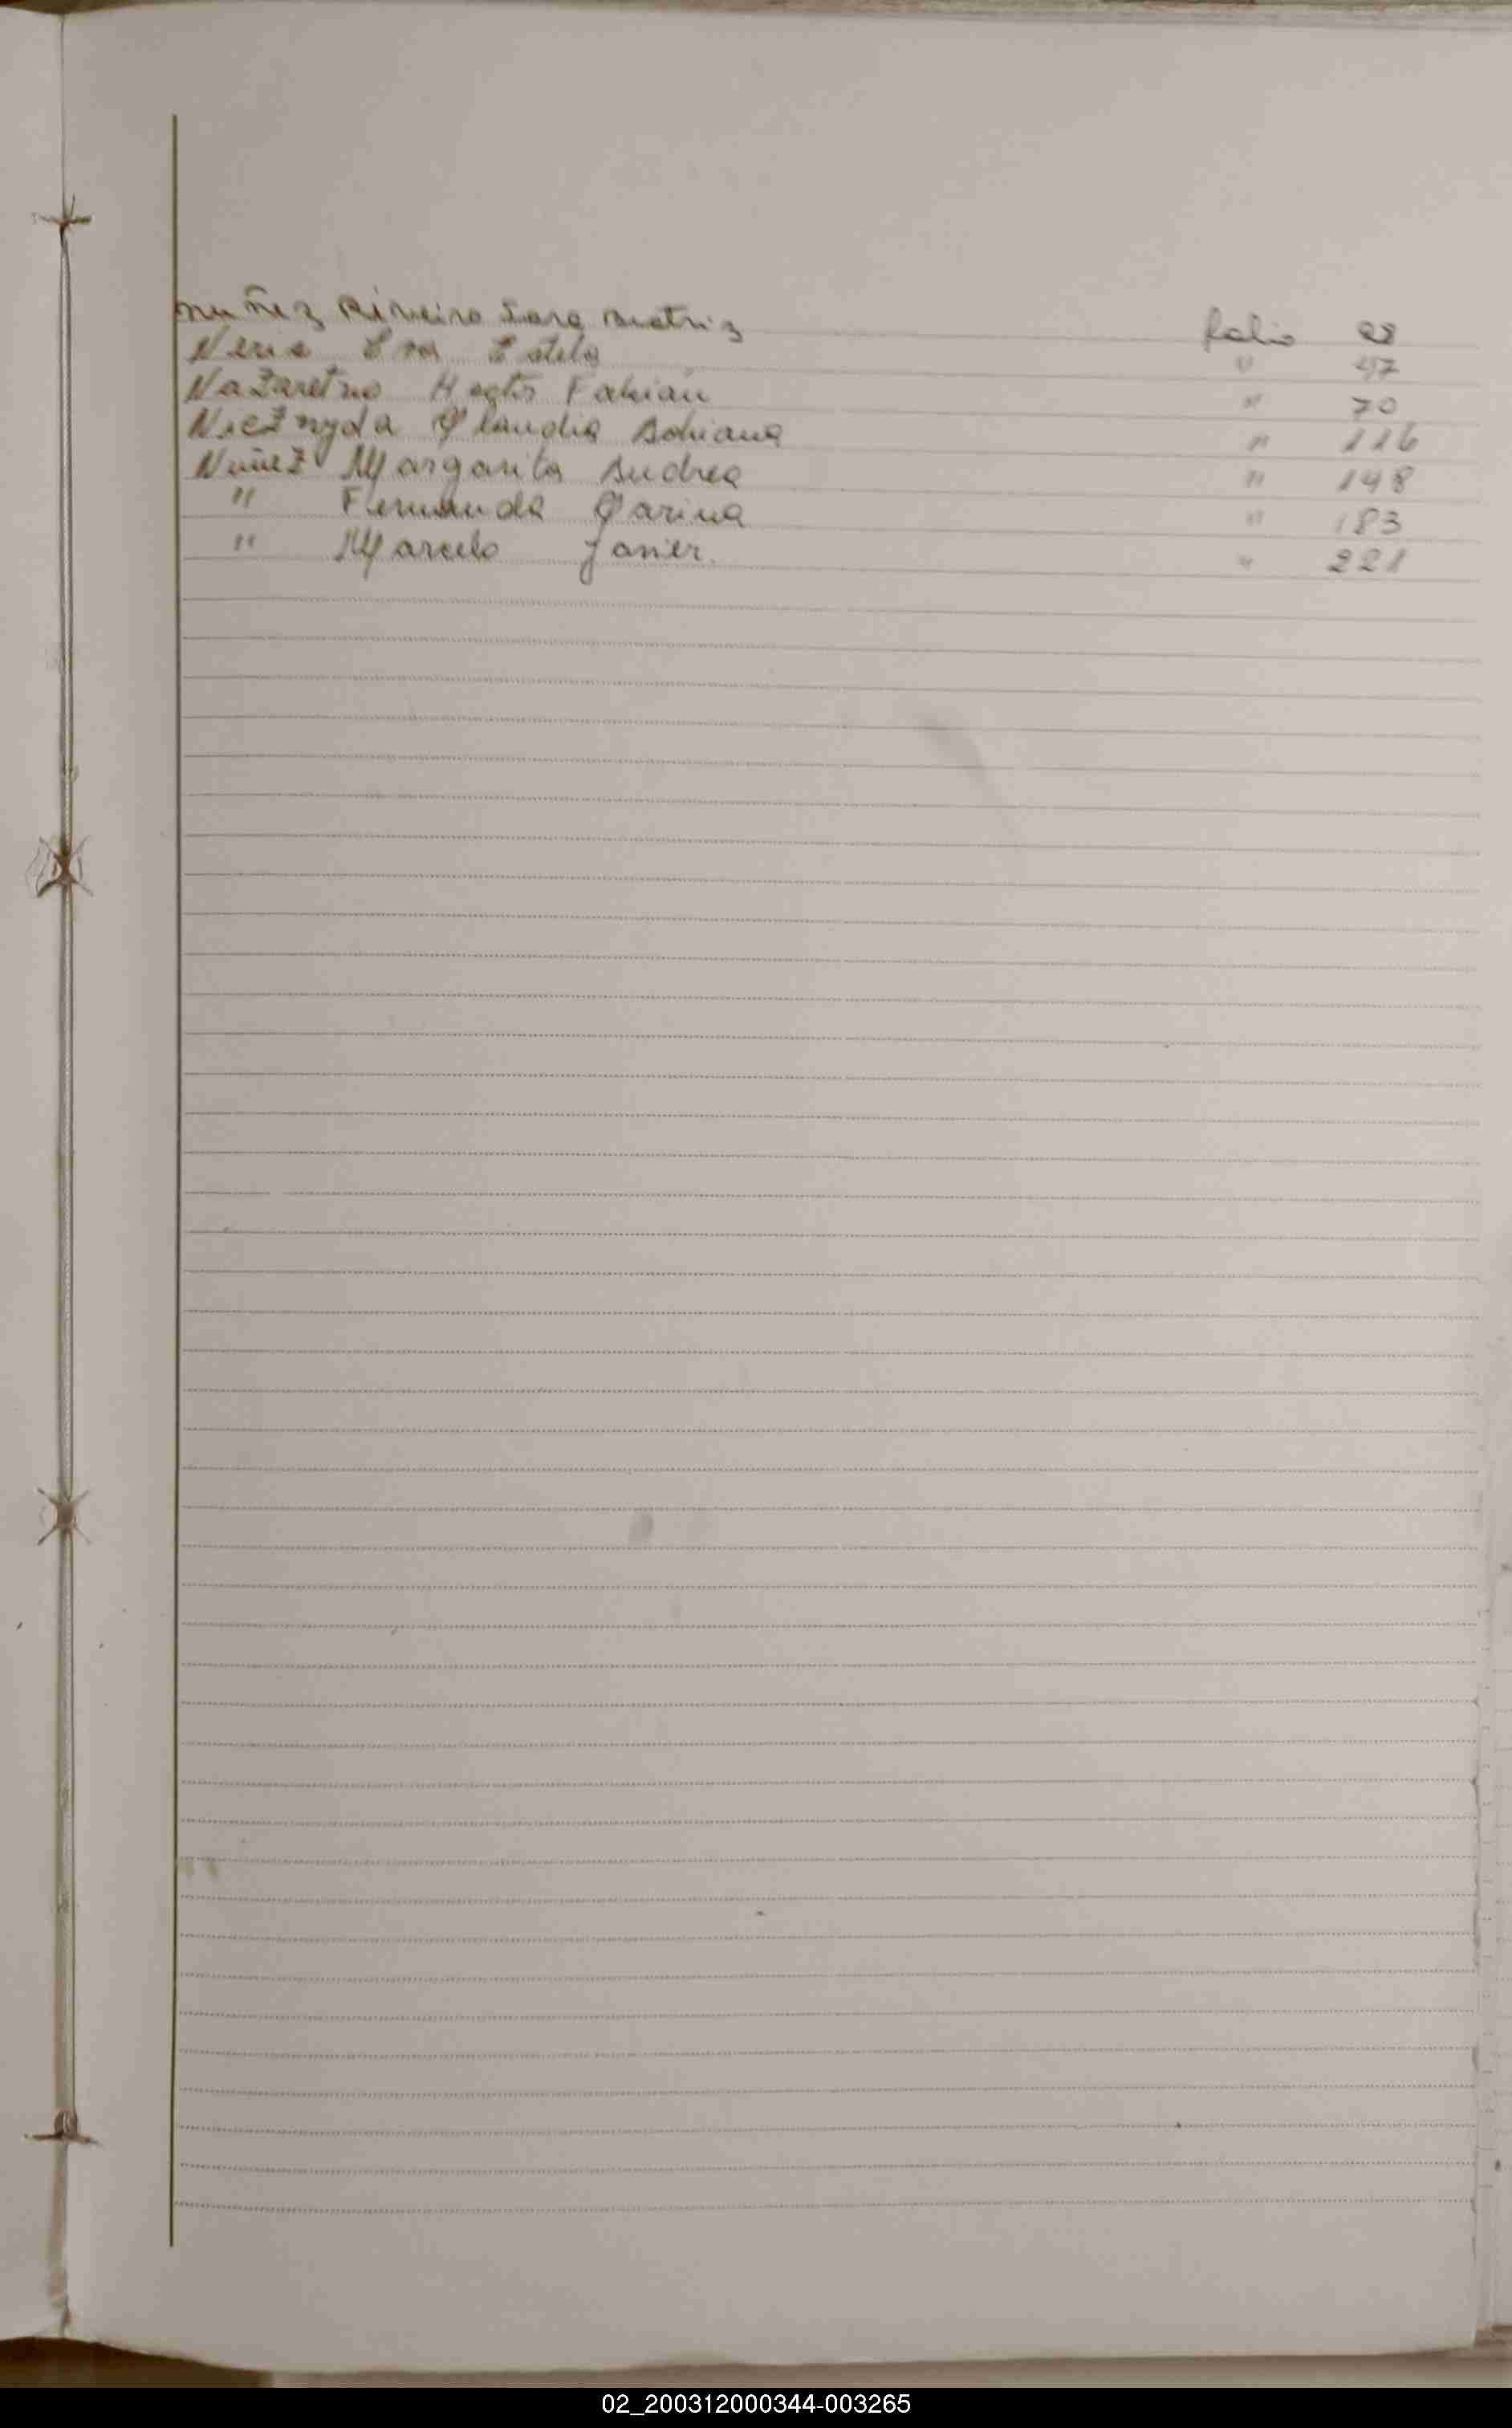 Nuñez Riveiro Sara Beatriz folio 28
Neria Eva Estela " 47
Nazaretno Hector Fabián " 70
Niežnyda Claudia Adriana " 116
Nuñez Margarita Andrea " 148
" Fernanda Carina " 183
" Marcelo Javier. " 221
02_200312000344-003265